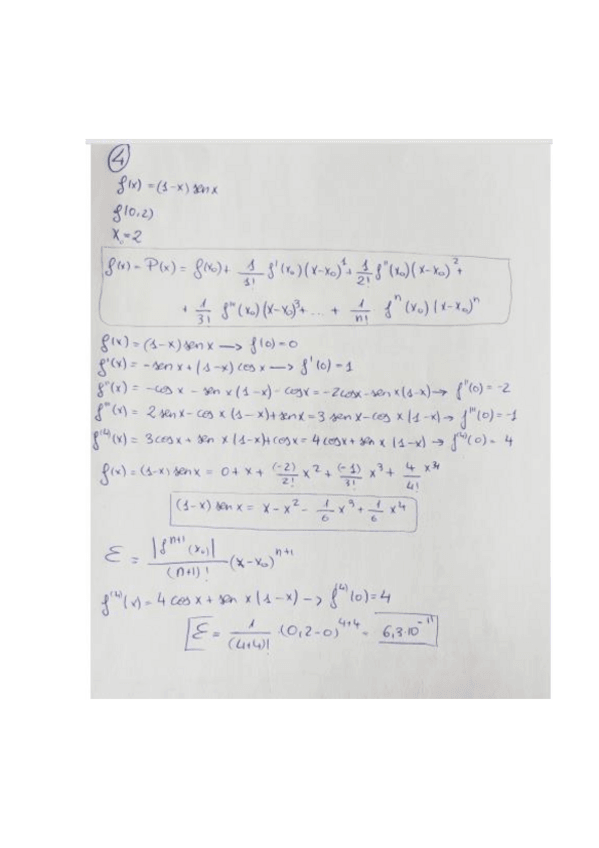 4
f(x) = (1-x) sen x
f(0,2)
x₀ = 2
f(x) = P(x) = f(x₀) + 1/1! f'(x₀)(x-x₀)¹ + 1/2! f''(x₀)(x-x₀)² +
+ 1/3! f'''(x₀)(x-x₀)³ + ... + 1/n! fⁿ(x₀)(x-x₀)ⁿ
f(x) = (1-x) sen x → f(0) = 0
f'(x) = -sen x + (1-x) cos x → f'(0) = 1
f''(x) = -cos x - sen x (1-x) - cos x = -2cos x - sen x (1-x) → f''(0) = -2
f'''(x) = 2 sen x - cos x (1-x) + sen x = 3 sen x - cos x (1-x) → f'''(0) = -1
f⁽⁴⁾(x) = 3cos x + sen x (1-x) + cos x = 4cos x + sen x (1-x) → f⁽⁴⁾(0) = 4
f(x) = (1-x) sen x = 0 + x + (-2)/2! x² + (-1)/3! x³ + 4/4! x⁴
(1-x) sen x = x - x² - 1/6 x³ + 1/6 x⁴
ε = |fⁿ⁺¹(x₀)|/(n+1)! (x-x₀)ⁿ⁺¹
f⁽⁴⁾(x) = 4 cos x + sen x (1-x) → f⁽⁴⁾(0) = 4
ε = 1/(4+4)! (0,2-0)⁴⁺⁴ = 6,3·10⁻¹¹